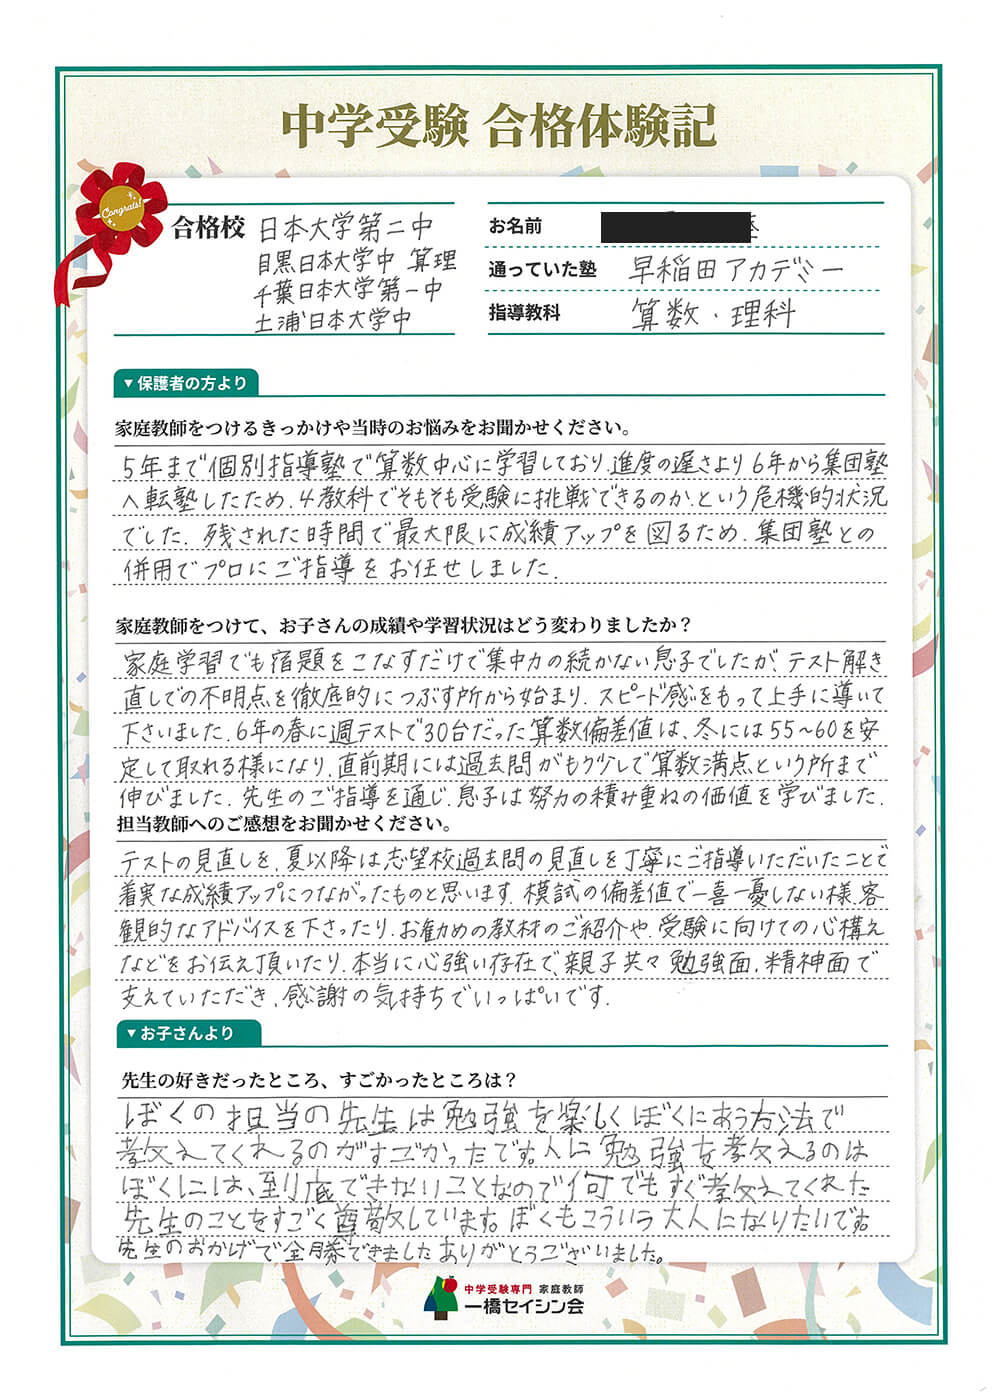 中学受験 合格体験記
Congrats!
合格校 日本大学第二中
目黒日本大学中 算理
千葉日本大学第一中
土浦日本大学中
お名前
通っていた塾 早稲田アカデミー
指導教科 算数・理科
▼保護者の方より
家庭教師をつけるきっかけや当時のお悩みをお聞かせください。
5年まで個別指導塾で算数中心に学習しており、進度の遅さより6年から集団塾
へ転塾したため、4教科でそもそも受験に挑戦できるのか、という危機的状況
でした. 残された時間で最大限に成績アップを図るため、集団塾との
併用でプロにご指導をお任せしました.
家庭教師をつけて、お子さんの成績や学習状況はどう変わりましたか？
家庭学習でも宿題をこなすだけで集中力の続かない息子でしたが、テスト解き
直しでの不明点を徹底的につぶす所から始まり、スピード感をもって上手に導いて
下さいました. 6年の春に週テストで30台だった算数偏差値は、冬には55～60を安
定して取れる様になり、直前期には過去問がもう少しで算数満点という所まで
伸びました. 先生のご指導を通じ、息子は努力の積み重ねの価値を学びました.
担当教師へのご感想をお聞かせください。
テストの見直しを、夏以降は志望校過去問の見直しを丁寧にご指導いただいたことで
着実な成績アップにつながったものと思います. 模試の偏差値で一喜一憂しない様、客
観的なアドバイスを下さったり、お勧めの教材のご紹介や、受験に向けての心構え
などをお伝え頂いたり、本当に心強い存在で、親子共々勉強面、精神面で
支えていただき、感謝の気持ちでいっぱいです.
▼お子さんより
先生の好きだったところ、すごかったところは？
ぼくの担当の先生は勉強を楽しくぼくにあう方法で
教えてくれるのがすごかったです。人に勉強を教えるのは
ぼくには、到底できないことなので何でもすぐ教えてくれた
先生のことをすごく尊敬しています。ぼくもこういう大人になりたいです。
先生のおかげで全勝できましたありがとうございました。
中学受験専門 家庭教師
一橋セイシン会